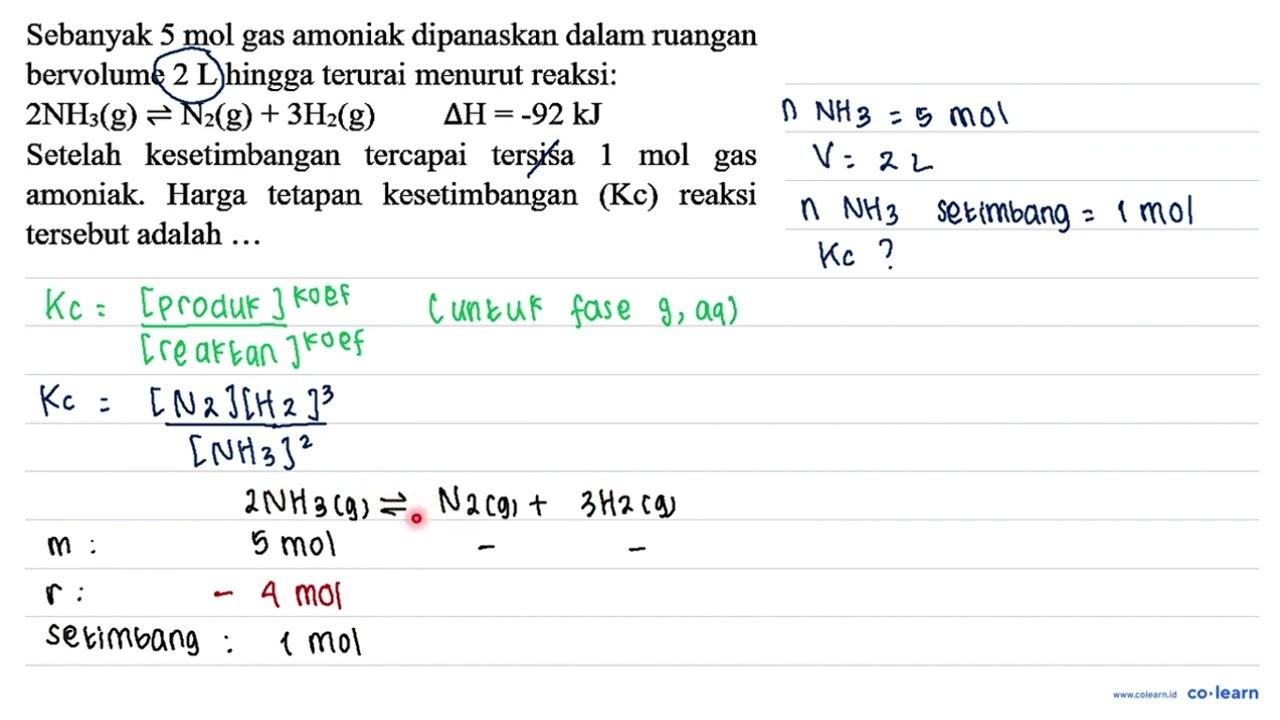 Sebanyak 5 mol gas amoniak dipanaskan dalam ruangan
bervolume 2 L hingga terurai menurut reaksi:
2NH₃(g) ⇌ N₂(g) + 3H₂(g) ΔH = -92 kJ
Setelah kesetimbangan tercapai tersisa 1 mol gas
amoniak. Harga tetapan kesetimbangan (Kc) reaksi
tersebut adalah ...
n NH3 = 5 mol
V = 2 L
n NH3 setimbang = 1 mol
Kc ?
Kc = [produk]^koef (untuk fase g, aq)
[reaktan]^koef
Kc = [N2][H2]³
[NH3]²
2NH3(g) ⇌ N2(g) + 3H2(g)
m : 5 mol - -
r : - 4 mol
setimbang : 1 mol
www.colearn.id co·learn